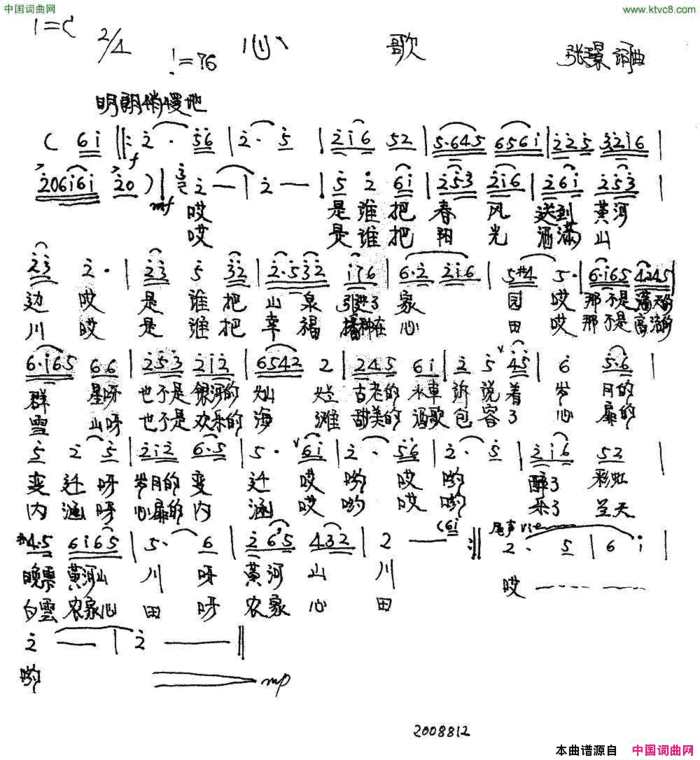 中国词曲网
www.ktvc8.com
1=C 2/4 ♩=76 心 歌 张璟 词曲
明朗稍慢地
( 6 i ‖: 2 · 5 6 | 2 · 5 | 2 i 6 5 2 | 5·6 4 5 6 5 6 i | 2 2 5 3 2 i 6 |
2 0 6 i 6 i 2 0 ) | 2 — | 2 — | 5 2 6 i | 2 5 3 2 i 6 | 2 6 i 2 5 3 |
mf 哎 是谁把 春 风 送到 黄河
哎 是谁把 阳 光 洒满 山
2 3 2 · | 2 3 5 3 2 | 2·5 3 2 | 6·2 2 i 6 | 5 #4 5 · | 6 i 6 5 4 2 4 5 |
边 哎 是 谁 把 山 泉 引进了 家 园 哎 那不是
川 哎 是 谁 把 幸 福 心 田 哎 那不是
6·i 6 5 6 6 | 2 5 3 2 i 2 | 6 5 4 2 2 | 2 4 5 6 i | 2 5 4 5 | 6 5·6 |
群 星呀 也不是 银河的 灿 烂 古老的 水车 诉 说 着 岁 月的
雪 山呀 也不是 欢乐的 海 滩 甜美的 酒歌 包 容 了 心 扉的
5 2 5 | 2 i 2 6·5 | 5 · 6 i | 2 · 5 6 | 2 · 5 | 2 i 6 5 2 |
变 迁 呀 岁月的 变 迁 哎 哟 哎 哟 醉了 彩虹
内 涵 呀 心扉的 内 涵 哎 哟 哎 哟 来了 兰天
#4·5 6 i 6 5 | 5 · 6 | 2 6 5 4 3 2 | 2 — (6 i :‖ 2 · 5 | 6 i |
晚票 黄河山 川 呀 黄河 山 川
白雪 农家心 田 呀 农家 心 田 哎
2 — | 2 — ‖
哟 mp
2008812
本曲谱源自 中国词曲网